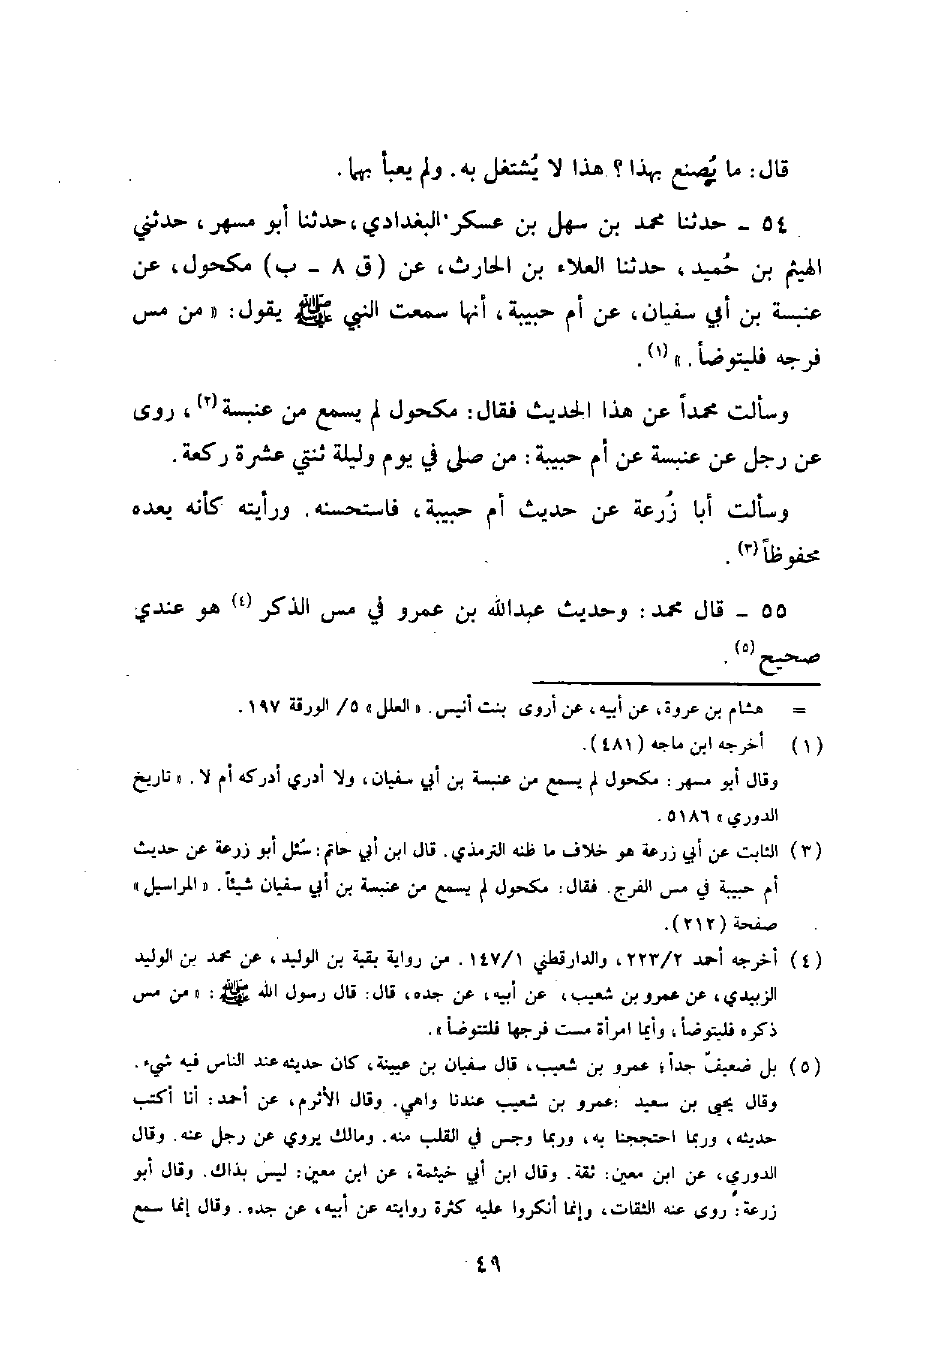 قال: ما يُصنع بهذا؟ هذا لا يُشتغل به. ولم يعبأ بها.
٥٤ - حدثنا محمد بن سهل بن عسكر البغدادي، حدثنا أبو مسهر، حدثني
الهيثم بن حُميد، حدثنا العلاء بن الحارث، عن (ق ٨ - ب) مكحول، عن
عنبسة بن أبي سفيان، عن أم حبيبة، أنها سمعت النبي ﷺ يقول: «من مس
فرجه فليتوضأ.» (١).
وسألت محمداً عن هذا الحديث فقال: مكحول لم يسمع من عنبسة (٢)، روى
عن رجل عن عنبسة عن أم حبيبة: من صلى في يوم وليلة ثنتي عشرة ركعة.
وسألت أبا زُرعة عن حديث أم حبيبة، فاستحسنه. ورأيته كأنه يعده
محفوظاً (٣).
٥٥ - قال محمد: وحديث عبدالله بن عمرو في مس الذكر (٤) هو عندي
صحيح (٥).
= هشام بن عروة، عن أبيه، عن أروى بنت أنيس. «العلل» ٥/ الورقة ١٩٧.
(١) أخرجه ابن ماجه (٤٨١).
وقال أبو مسهر: مكحول لم يسمع من عنبسة بن أبي سفيان، ولا أدري أدركه أم لا. «تاريخ
الدوري» ٥١٨٦.
(٣) الثابت عن أبي زرعة هو خلاف ما ظنه الترمذي. قال ابن أبي حاتم: سُئل أبو زرعة عن حديث
أم حبيبة في مس الفرج. فقال: مكحول لم يسمع من عنبسة بن أبي سفيان شيئاً. «المراسيل»
صفحة (٢١٢).
(٤) أخرجه أحمد ٢٢٣/٢، والدارقطني ١٤٧/١. من رواية بقية بن الوليد، عن محمد بن الوليد
الزبيدي، عن عمرو بن شعيب، عن أبيه، عن جده، قال: قال رسول الله ﷺ: «من مس
ذكره فليتوضأ، وأيما امرأة مست فرجها فلتتوضأ».
(٥) بل ضعيفٌ جداً؛ عمرو بن شعيب، قال سفيان بن عيينة، كان حديثه عند الناس فيه شيء.
وقال يحيى بن سعيد: عمرو بن شعيب عندنا واهي. وقال الأثرم، عن أحمد: أنا أكتب
حديثه، وربما احتججنا به، وربما وجس في القلب منه. ومالك يروي عن رجل عنه. وقال
الدوري، عن ابن معين: ثقة. وقال ابن أبي خيثمة، عن ابن معين: ليس بذاك. وقال أبو
زرعة: روى عنه الثقات، وإنما أنكروا عليه كثرة روايته عن أبيه، عن جده. وقال إنما سمع
٤٩